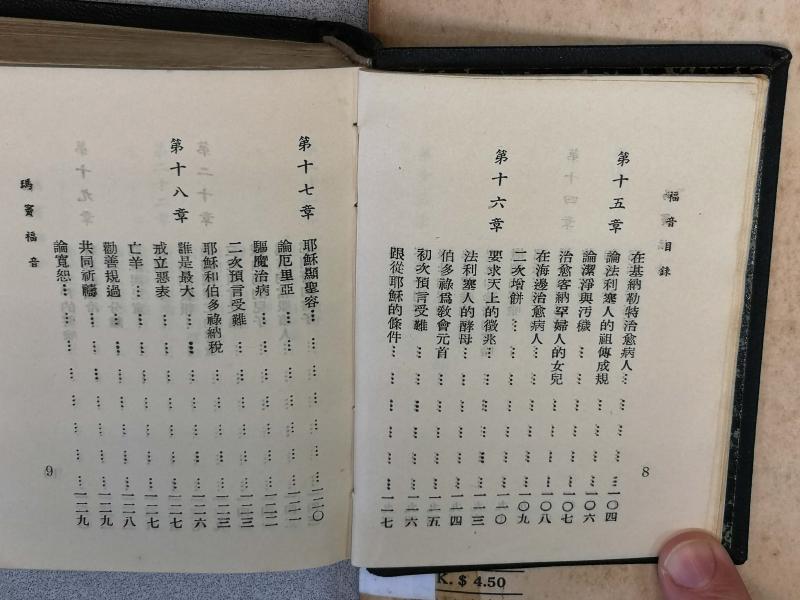 福音目錄
8
第十五章
在基納勒特治愈病人… … … … … 一〇四
論法利塞人的祖傳成規 … … … … 一〇六
論潔淨與污穢… … … … … … 一〇七
治愈客納罕婦人的女兒 … … … … 一〇八
在海邊治愈病人… … … … … 一〇九
二次增餅… … … … … … 一一〇
第十六章
要求天上的徵兆… … … … … 一一三
法利塞人的酵母… … … … … 一一四
伯多祿爲教會元首 … … … … 一一五
初次預言受難… … … … … 一一六
跟從耶穌的條件… … … … … 一一七
第十七章
耶穌顯聖容… … … … … … 一二〇
論厄里亞… … … … … … 一二一
驅魔治病… … … … … … 一二二
二次預言受難… … … … … 一二三
耶穌和伯多祿納稅 … … … … 一二三
第十八章
誰是最大… … … … … … 一二六
戒立惡表… … … … … … 一二七
亡羊… … … … … … 一二七
勸善規過… … … … … … 一二八
共同祈禱… … … … … … 一二九
論寬恕… … … … … … 一二九
瑪竇福音
9
K. $ 4.50